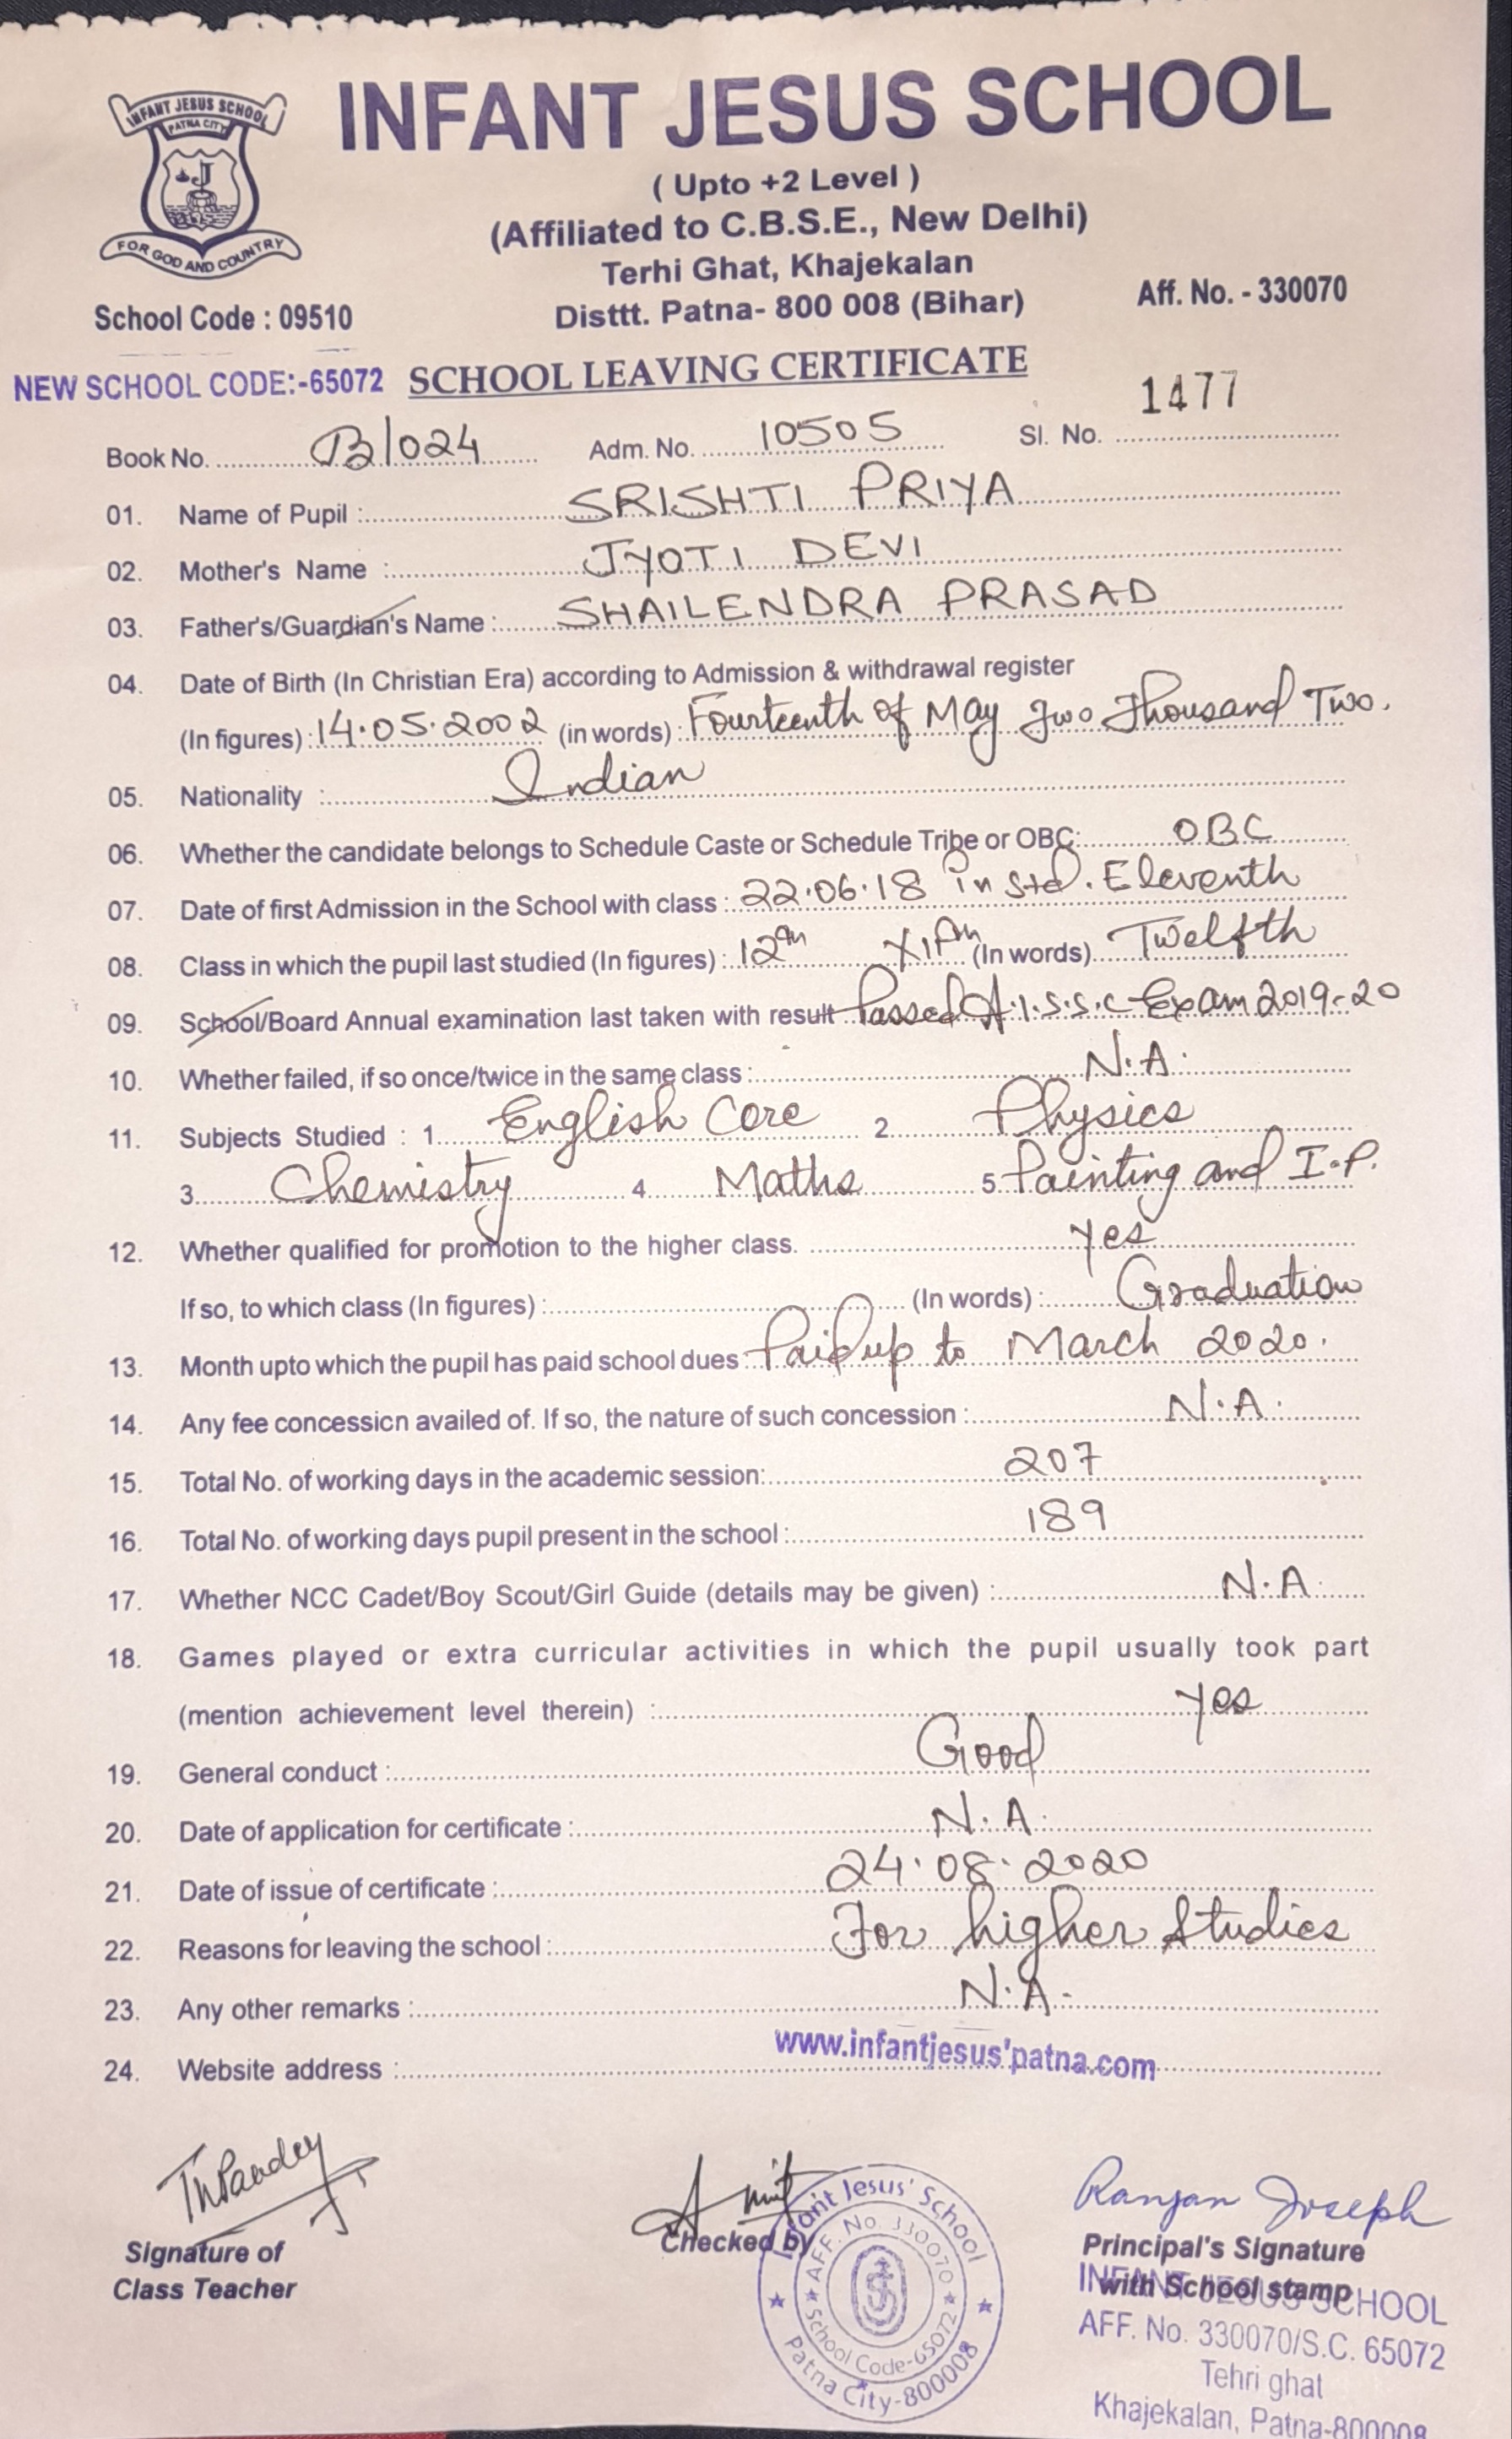 INFANT JESUS SCHOOL
PATNA CITY
J
FOR GOD AND COUNTRY
INFANT JESUS SCHOOL
( Upto +2 Level )
(Affiliated to C.B.S.E., New Delhi)
Terhi Ghat, Khajekalan
Disttt. Patna- 800 008 (Bihar)
School Code : 09510
Aff. No. - 330070
NEW SCHOOL CODE:-65072 SCHOOL LEAVING CERTIFICATE
Book No. B/024 Adm. No. 10505 Sl. No. 1477
01. Name of Pupil : SRISHTI PRIYA
02. Mother's Name : JYOTI DEVI
03. Father's/Guardian's Name : SHAILENDRA PRASAD
04. Date of Birth (In Christian Era) according to Admission & withdrawal register
(In figures) : 14.05.2002 (in words) : Fourteenth of May Two Thousand Two.
05. Nationality : Indian
06. Whether the candidate belongs to Schedule Caste or Schedule Tribe or OBC: OBC
07. Date of first Admission in the School with class : 22.06.18 in Std. Eleventh
08. Class in which the pupil last studied (In figures) : 12th XIIth (In words) Twelfth
09. School/Board Annual examination last taken with result Passed A.I.S.S.C Exam 2019-20
10. Whether failed, if so once/twice in the same class : N.A.
11. Subjects Studied : 1. English Core 2. Physics
3. Chemistry 4. Maths 5. Painting and I.P.
12. Whether qualified for promotion to the higher class. Yes
If so, to which class (In figures) : (In words) : Graduation
13. Month upto which the pupil has paid school dues : Paid up to March 2020.
14. Any fee concession availed of. If so, the nature of such concession : N.A.
15. Total No. of working days in the academic session: 207
16. Total No. of working days pupil present in the school : 189
17. Whether NCC Cadet/Boy Scout/Girl Guide (details may be given) : N.A.
18. Games played or extra curricular activities in which the pupil usually took part
(mention achievement level therein) : Yes
19. General conduct : Good
20. Date of application for certificate : N.A.
21. Date of issue of certificate : 24.08.2020
22. Reasons for leaving the school : For higher Studies
23. Any other remarks : N.A.
24. Website address : www.infantjesus'patna.com
TNPandey
Signature of
Class Teacher
Amit
Checked by
Infant Jesus' School
AFF. No. 330070
School Code-65072
Patna City-800008
Ranjan Joseph
Principal's Signature
with School stamp
INFANT JESUS SCHOOL
AFF. No. 330070/S.C. 65072
Tehri ghat
Khajekalan, Patna-800008